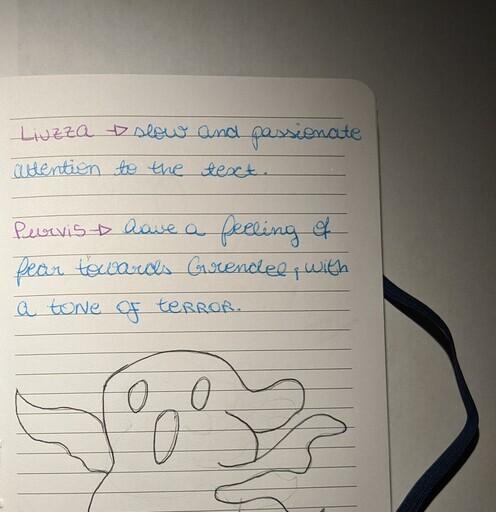 LIUZZA → slow and passionate
attention to the text.
Purvis → have a feeling of
fear towards Grendel, with
a tone of terror.